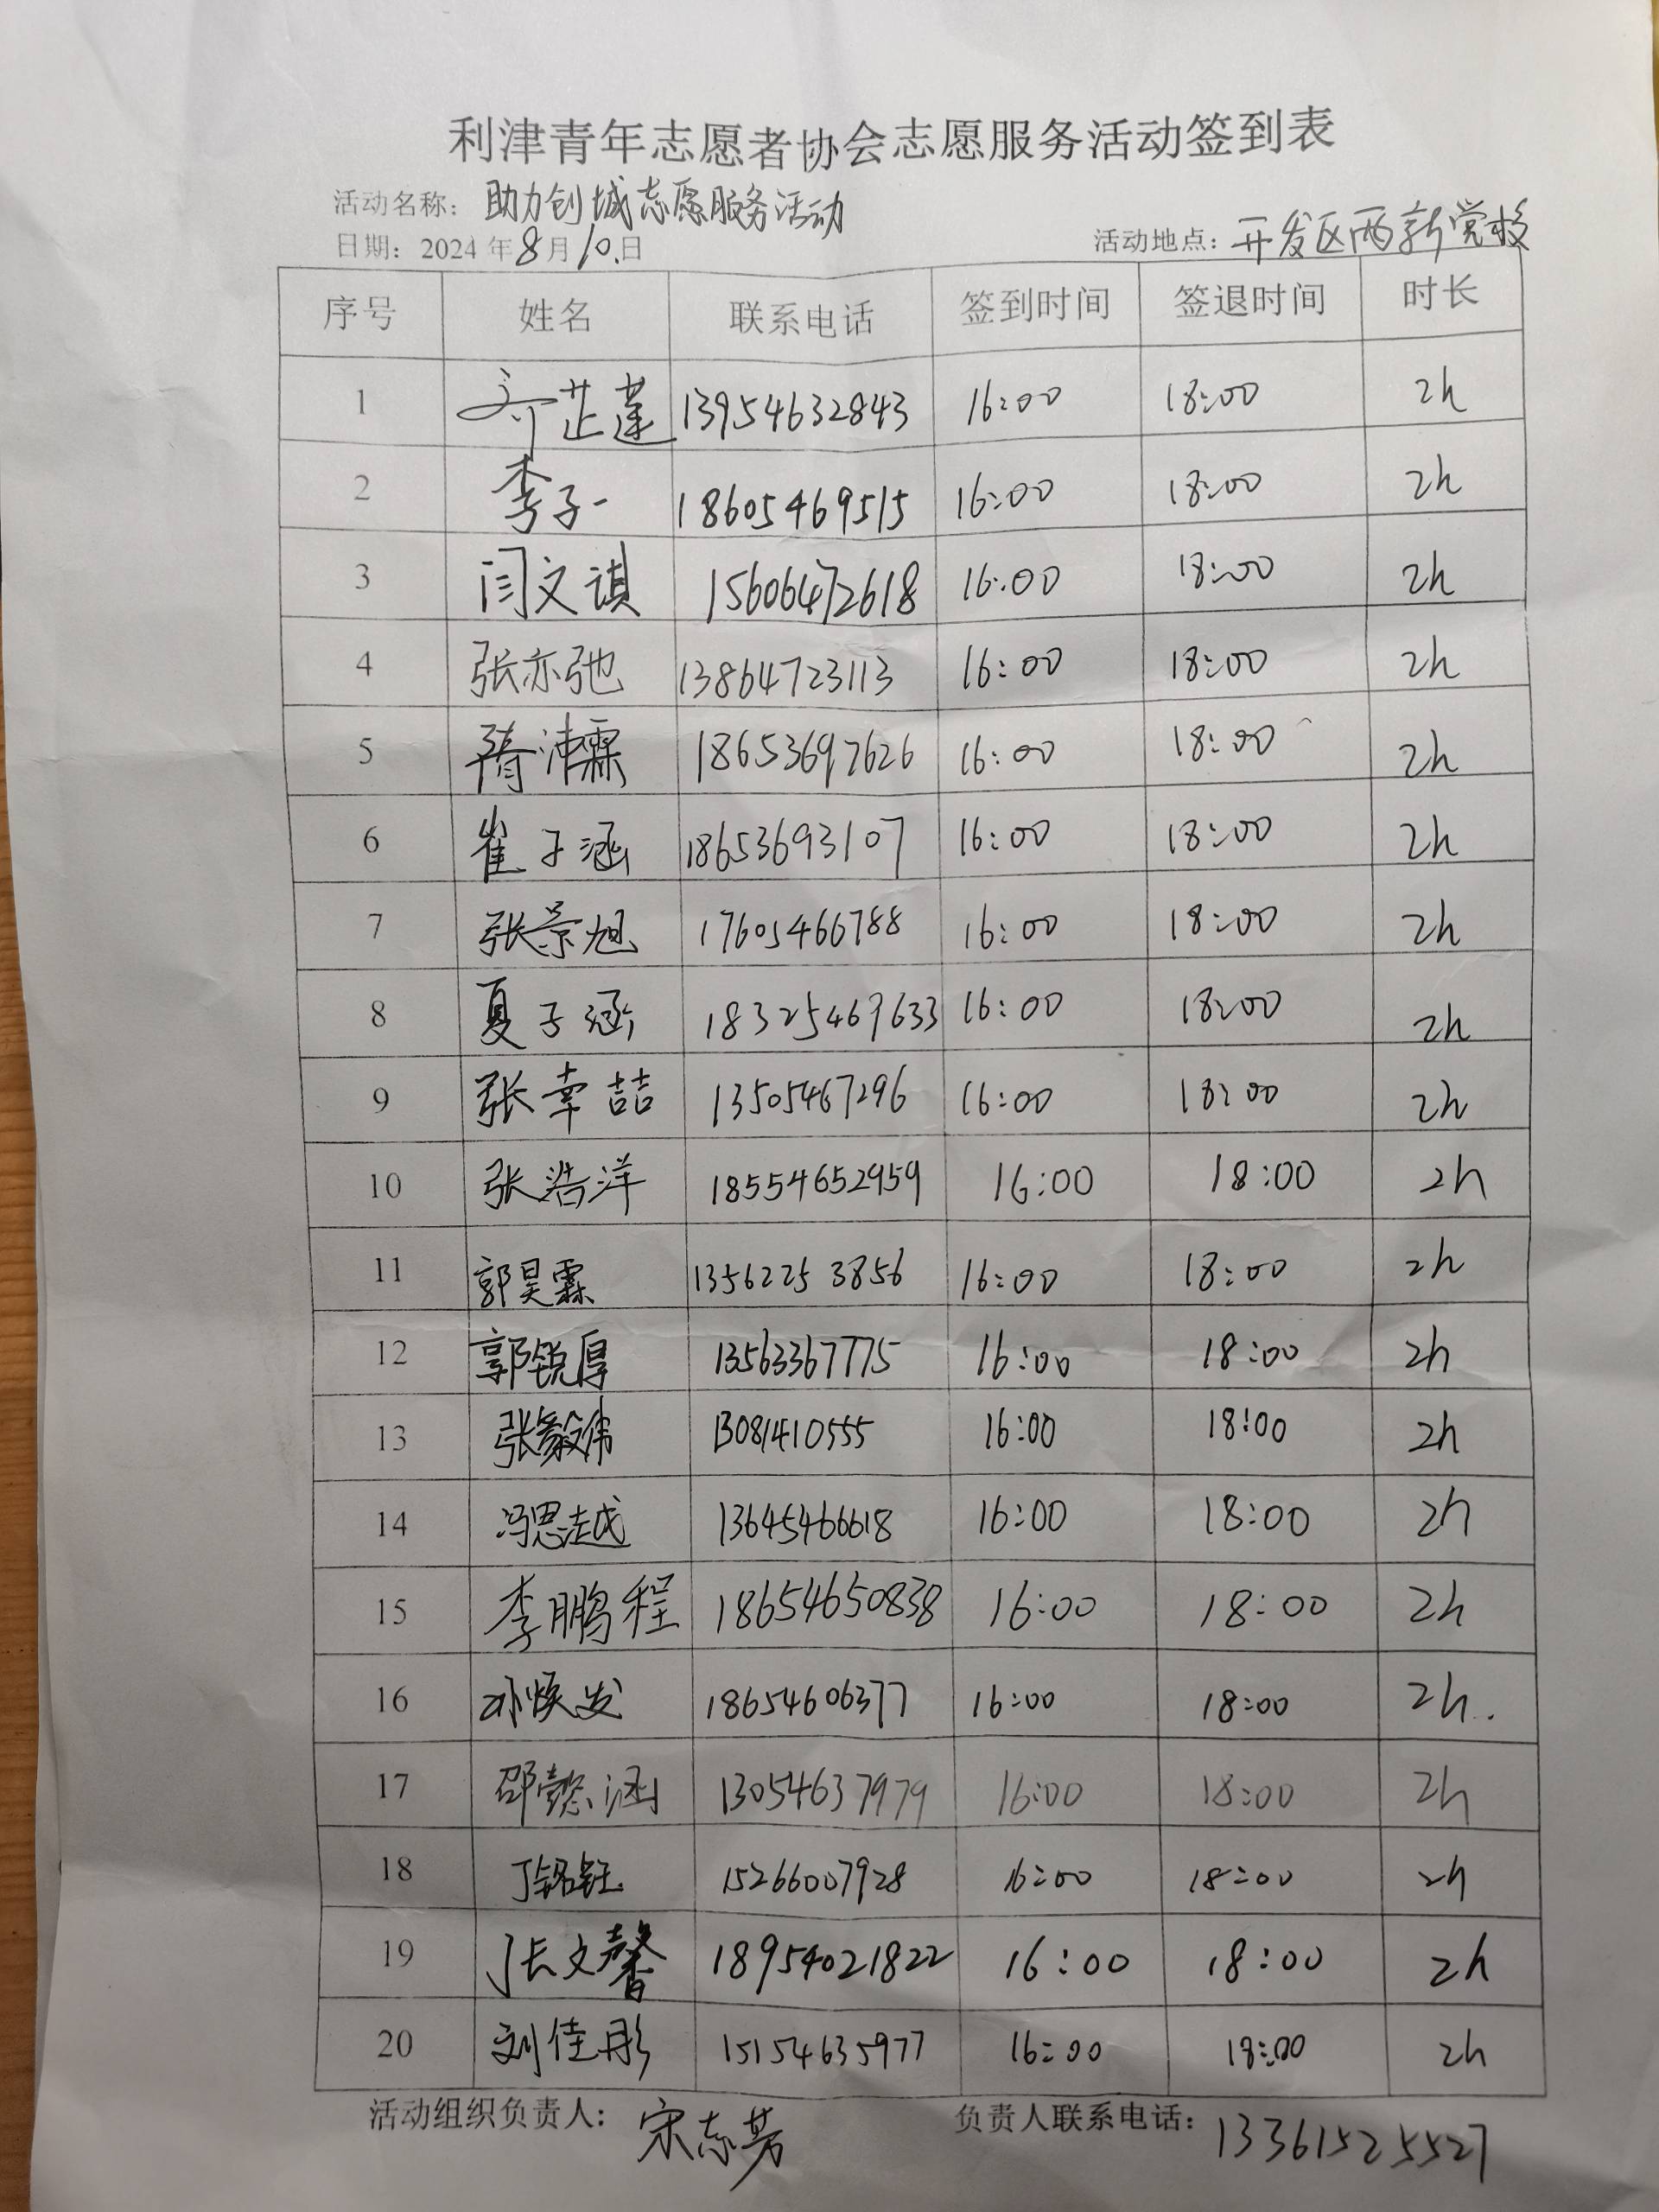 利津青年志愿者协会志愿服务活动签到表
活动名称：助力创城志愿服务活动
日期：2024年8月10日 活动地点：开发区西新党校
序号 姓名 联系电话 签到时间 签退时间 时长
1 齐芷蓬 13954632843 16:00 18:00 2h
2 李子一 18605469515 16:00 18:00 2h
3 闫文谟 15606472618 16:00 18:00 2h
4 张亦弛 13864723113 16:00 18:00 2h
5 霖 18653697626 16:00 18:00 2h
6 崔子涵 18653693107 16:00 18:00 2h
7 张景旭 17605466788 16:00 18:00 2h
8 夏子涵 18325469633 16:00 18:00 2h
9 张幸喆 13505467296 16:00 18:00 2h
10 张浩洋 18554652959 16:00 18:00 2h
11 郭昊霖 13562253856 16:00 18:00 2h
12 郭锐厚 13563367775 16:00 18:00 2h
13 张毅伟 13081410555 16:00 18:00 2h
14 冯思越 13645466618 16:00 18:00 2h
15 李鹏程 18654650838 16:00 18:00 2h
16 孙焕发 18654606377 16:00 18:00 2h.
17 邵懿涵 13054637979 16:00 18:00 2h
18 丁铭钰 15266007928 16:00 18:00 2h
19 张文馨 18954021822 16:00 18:00 2h
20 刘佳彤 15154635977 16:00 18:00 2h
活动组织负责人：宋志芳 负责人联系电话：13361525527